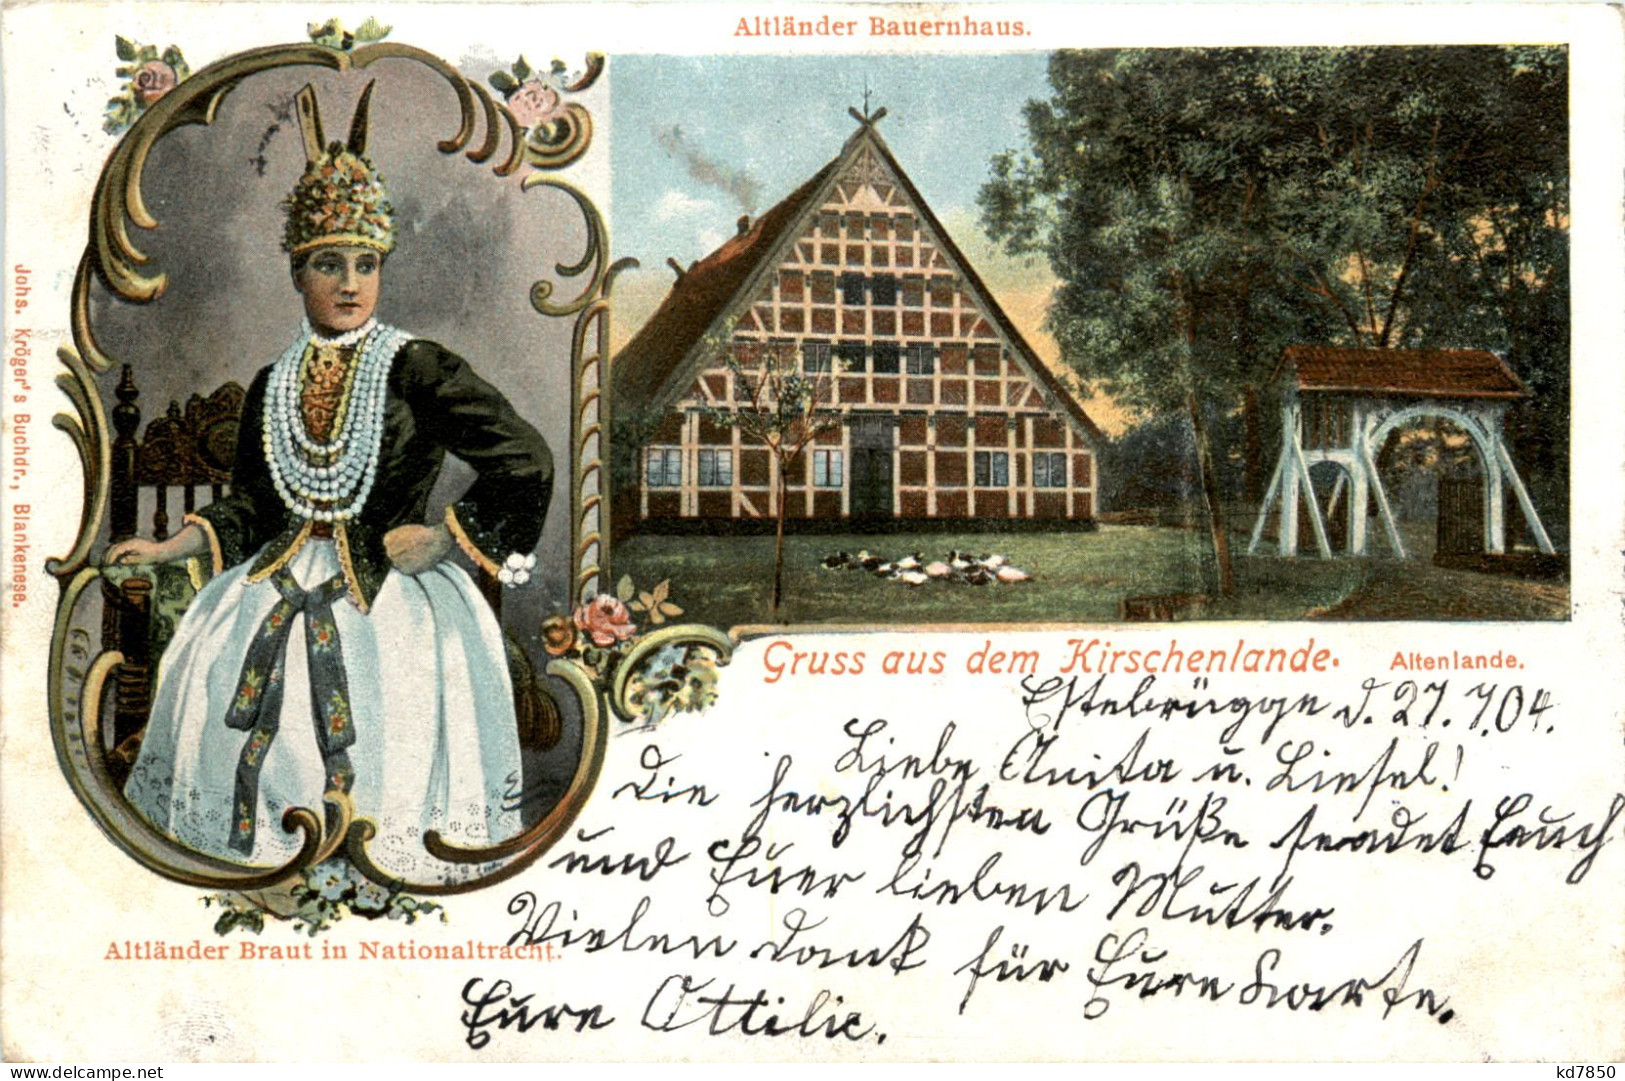 Altländer Bauernhaus.
Johs. Kröger's Buchdr., Blankenese.
Gruss aus dem Kirschenlande.
Altenlande.
Estebrügge d. 27.7.04.
Liebe Anita u. Liesel!
Die herzlichsten Grüße sendet Euch
und Euer lieben Mutter.
Vielen Dank für Eure Karte.
Eure Ottilie.
Altländer Braut in Nationaltracht.
delcampe.net
kd7850